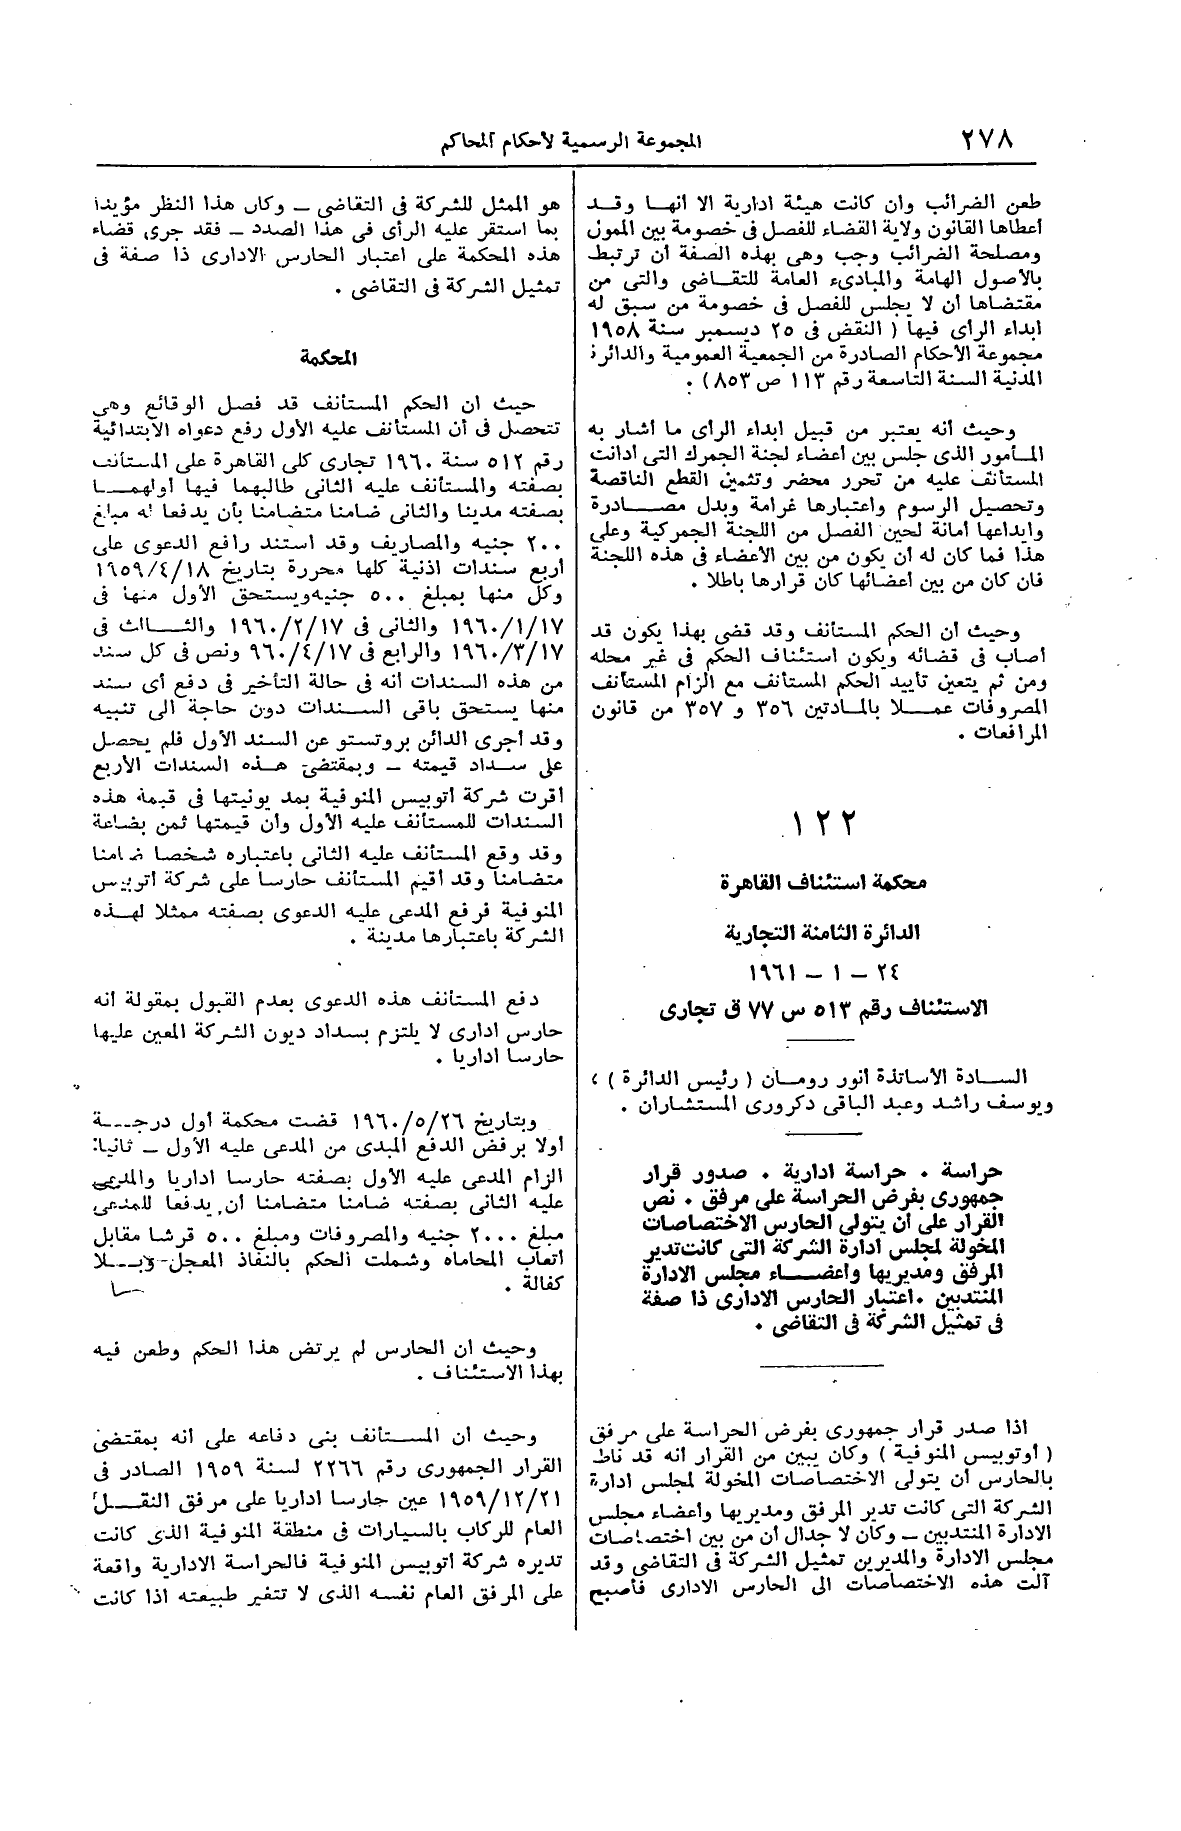 ٢٧٨
المجموعة الرسمية لأحكام المحاكم
طعن الضرائب وان كانت هيئة ادارية الا انهـا وقـد
أعطاها القانون ولاية القضاء للفصل فى خصومة بين الممول
ومصلحة الضرائب وجب وهى بهذه الصفة أن ترتبط
بالأصول الهامة والمبادىء العامة للتقـاضى والتى من
مقتضاها أن لا يجلس للفصل فى خصومة من سبق له
ابداء الرأى فيها ( النقض فى ٢٥ ديسمبر سنة ١٩٥٨
مجموعة الأحكام الصادرة من الجمعية العمومية والدائرة
المدنية السنة التاسعة رقم ١١٣ ص ٨٥٣) .
وحيث أنه يعتبر من قبيل ابداء الرأى ما أشار به
المـأمور الذى جلس بين أعضاء لجنة الجمرك التى ادانت
المستأنف عليه من تحرر محضر وتثمين القطع الناقصة
وتحصيل الرسوم واعتبارها غرامة وبدل مصـــادرة
وايداعها أمانة لحين الفصل من اللجنة الجمركية وعلى
هذا فما كان له أن يكون من بين الأعضاء فى هذه اللجنة
فان كان من بين أعضائها كان قرارها باطلا .
وحيث أن الحكم المستأنف وقد قضى بهذا يكون قد
أصاب فى قضائه ويكون استئناف الحكم فى غير محله
ومن ثم يتعين تأييد الحكم المستأنف مع الزام المستأنف
المصروفات عمـــلا بالمـادتين ٣٥٦ و ٣٥٧ من قانون
المرافعات .
١٢٢
محكمة استئناف القاهرة
الدائرة الثامنة التجارية
٢٤ – ١ – ١٩٦١
الاستئناف رقم ٥١٣ س ٧٧ ق تجارى
الســـادة الأساتذة أنور رومـان ( رئيس الدائرة ) ،
ويوسف راشد وعبد الباقى دكرورى المستشاران .
حراسة . حراسة ادارية . صدور قرار
جمهورى بفرض الحراسة على مرفق . نص
القرار على أن يتولى الحارس الاختصاصات
المخولة لمجلس ادارة الشركة التى كانت تدير
المرفق ومديريها وأعضـــاء مجلس الادارة
المنتدبين . اعتبار الحارس الادارى ذا صفة
فى تمثيل الشركة فى التقاضى .
اذا صدر قرار جمهورى بفرض الحراسة على مرفق
( أوتوبيس المنوفية ) وكان يبين من القرار أنه قد ناط
بالحارس أن يتولى الاختصاصات المخولة لمجلس ادارة
الشركة التى كانت تدير المرفق ومديريها وأعضاء مجلس
الادارة المنتدبين – وكان لا جدال أن من بين اختصاصات
مجلس الادارة والمديرين تمثيل الشركة فى التقاضى وقد
آلت هذه الاختصاصات الى الحارس الادارى فأصبح
هو الممثل للشركة فى التقاضى – وكان هذا النظر مؤيدا
بما استقر عليه الرأى فى هذا الصدد – فقد جرى قضاء
هذه المحكمة على اعتبار الحارس الادارى ذا صفة فى
تمثيل الشركة فى التقاضى .
المحكمة
حيث ان الحكم المستأنف قد فصل الوقائع وهى
تتحصل فى أن المستأنف عليه الأول رفع دعواه الابتدائية
رقم ٥١٢ سنة ١٩٦٠ تجارى كلى القاهرة على المستأنف
بصفته والمستأنف عليه الثانى طالبهما فيها أولهمـــا
بصفته مدينا والثانى ضامنا متضامنا بأن يدفعا له مبلغ
٢٠٠ جنيه والمصاريف وقد استند رافع الدعوى على
أربع سندات اذنية كلها محررة بتاريخ ١٦٥٩/٤/١٨
وكل منها بمبلغ ٥٠٠ جنيه ويستحق الأول منها فى
١٩٦٠/١/١٧ والثانى فى ١٩٦٠/٢/١٧ والثـــالث فى
١٩٦٠/٣/١٧ والرابع فى ٩٦٠/٤/١٧ ونص فى كل سند
من هذه السندات أنه فى حالة التأخير فى دفع أى سند
منها يستحق باقى الســـندات دون حاجة الى تنبيه
وقد أجرى الدائن بروتستو عن السند الأول فلم يحصل
على ســـداد قيمته – وبمقتضى هـذه السندات الأربع
أقرت شركة أتوبيس المنوفية بمد يونيتها فى قيمة هذه
السندات للمستأنف عليه الأول وأن قيمتها ثمن بضاعة
وقد وقع المستأنف عليه الثانى باعتباره شخصا ضامنا
متضامنا وقد أقيم المستأنف حارسا على شركة أتوبيس
المنوفية فرفع المدعى عليه الدعوى بصفته ممثلا لهـذه
الشركة باعتبارها مدينة .
دفع المستأنف هذه الدعوى بعدم القبول بمقولة أنه
حارس ادارى لا يلتزم بسداد ديون الشركة المعين عليها
حارسا اداريا .
وبتاريخ ١٩٦٠/٥/٢٦ قضت محكمة أول درجـــة
أولا برفض الدفع المبدى من المدعى عليه الأول – ثانيا:
الزام المدعى عليه الأول بصفته حارسا اداريا والمدعى
عليه الثانى بصفته ضامنا متضامنا أن يدفعا للمدعى
مبلغ ٢٠٠٠ جنيه والمصروفات ومبلغ ٥٠٠ قرشا مقابل
أتعاب المحاماه وشملت الحكم بالنفاذ المعجل وبـــلا
كفالة .
وحيث ان الحارس لم يرتض هذا الحكم وطعن فيه
بهذا الاستئناف .
وحيث ان المســـتأنف بنى دفاعه على أنه بمقتضى
القرار الجمهورى رقم ٢٢٦٦ لسنة ١٩٥٩ الصادر فى
١٩٥٩/١٢/٢١ عين حارسا اداريا على مرفق النقـــل
العام للركاب بالسيارات فى منطقة المنوفية الذى كانت
تديره شركة أتوبيس المنوفية فالحراسة الادارية واقعة
على المرفق العام نفسه الذى لا تتغير طبيعته اذا كانت